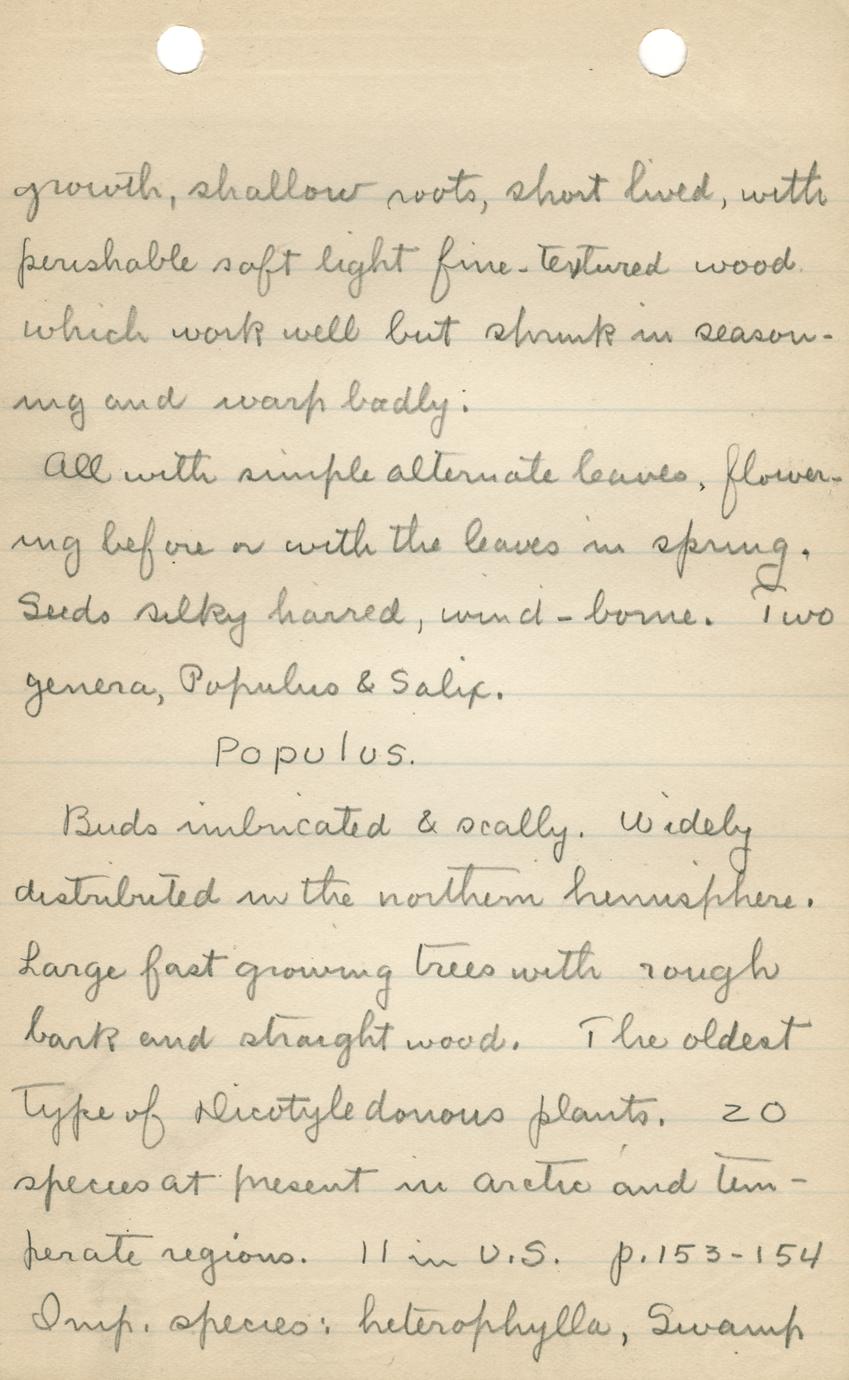 growth, shallow roots, short lived, with
perishable soft light fine-textured wood
which work well but shrink in season-
ing and warp badly.
All with simple alternate leaves, flower-
ing before or with the leaves in spring.
Seeds silky haired, wind-borne. Two
genera, Populus & Salix.
Populus.
Buds imbricated & scally. Widely
distributed in the northern hemisphere.
Large fast growing trees with rough
bark and straight wood. The oldest
type of Dicotyledonous plants. 20
species at present in arctic and tem-
perate regions. 11 in U.S. p.153-154
Imp. species: heterophylla, Swamp